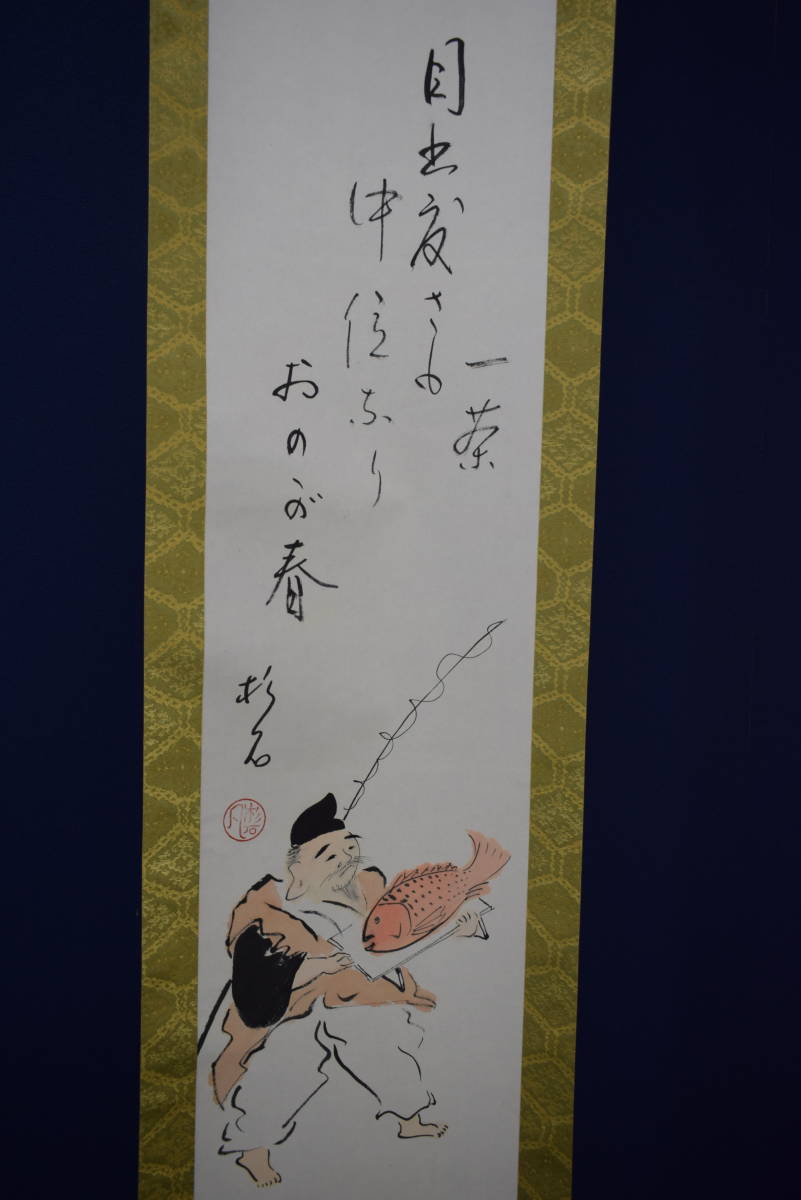 一茶
目出度さも
中位なり
おのが春
杉石